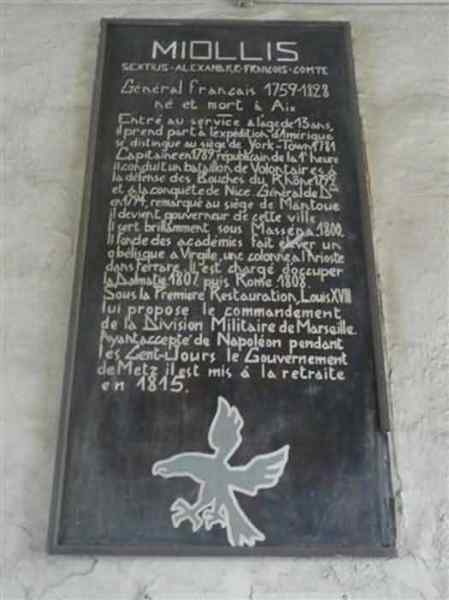 MIOLLIS
SEXTIUS-ALEXANDRE-FRENÇOIS-COMTE
Général Français 1759-1828
né et mort à Aix
Entré au service à l'âge de 13 ans,
il prend part à l'expédition d'Amérique
se distingue au siège de York-Town 1781
Capitaine en 1789, républicain de la 1e heure
il conduit un bataillon de Volontaires à
la défense des Bouches du Rhône 1792
et à la conquête de Nice. Général de Dn
en 1794, remarqué au siège de Mantoue
il devient gouverneur de cette ville
Il sert brillamment sous Masséna 1800.
Il fonde des académies fait élever un
obélisque à Virgile, une colonne à l'Arioste
dans Ferrare. Il est chargé d'occuper
la Dalmatie 1807 puis Rome 1808.
Sous la Première Restauration, Louis XVIII
lui propose le commandement
de la Division Militaire de Marseille.
Ayant accepté de Napoléon pendant
les Cent-Jours le Gouvernement
de Metz il est mis à la retraite
en 1815.